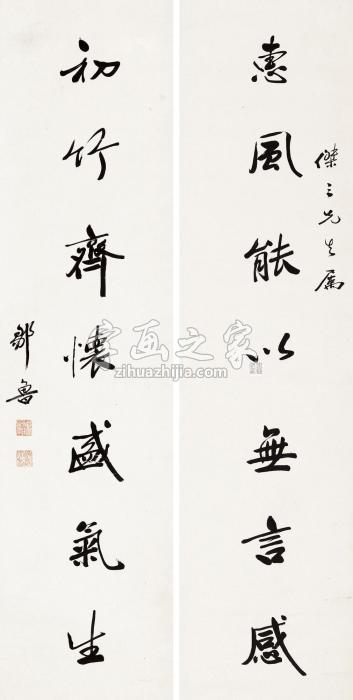 傑三先生属
惠風能以無言感
初竹齊懷盛氣生
鄒魯
字画之家
zihuazhijia.com